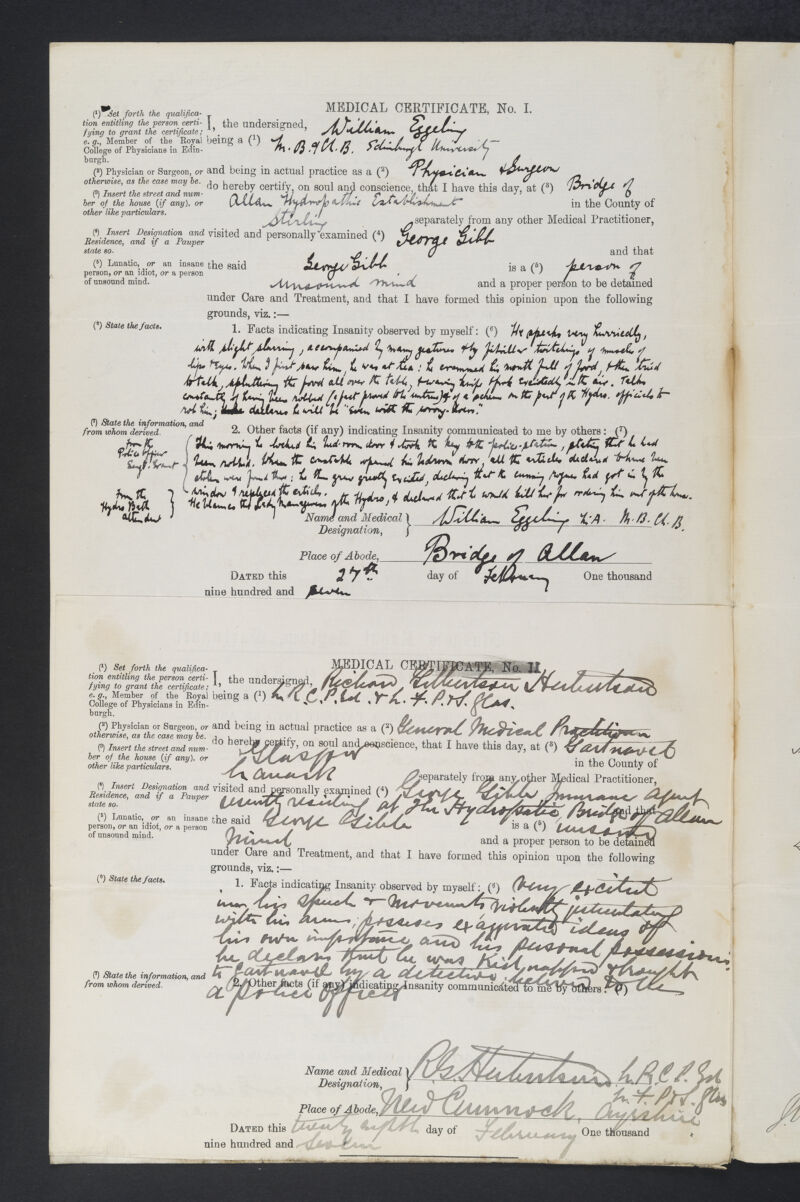 MEDICAL CERTIFICATE, No. I.
(¹) Set forth the qualifica-
tion entitling the person certi-
fying to grant the certificate;
e. g., Member of the Royal
College of Physicians in Edin-
burgh.
I, the undersigned, William Eggeling
being a (¹) M.B. & Ch.B. Edinburgh University
(²) Physician or Surgeon, or
otherwise, as the case may be.
and being in actual practice as a (²) Physician & Surgeon
(³) Insert the street and num-
ber of the house (if any). or
other like particulars.
do hereby certify, on soul and conscience, that I have this day, at (³) Bridge of
Allan Hydropathic Establishment in the County of
Stirling separately from any other Medical Practitioner,
(⁴) Insert Designation and
Residence, and if a Pauper
state so.
visited and personally examined (⁴) George Gibb
and that
(⁵) Lunatic, or an insane
person, or an idiot, or a person
of unsound mind.
the said George Gibb is a (⁵) person of
unsound mind and a proper person to be detained
under Care and Treatment, and that I have formed this opinion upon the following
grounds, viz.:—
(⁶) State the facts.
1. Facts indicating Insanity observed by myself: (⁶) He speaks very hurriedly,
with slight slurring, accompanied by many gestures & by fibrillar twitchings of muscles of
lips & eyes. When I first saw him, he was at tea: he crammed his mouth full of food, & then tried
to talk, spluttering the food all over the table, & waving knife & fork excitedly in the air. Talks
constantly of having been robbed (a fact proved to be untrue) & of a scheme on the part of the Hydro. officials to
rob him; declares he will be "even with the sorry
(⁷) State the information, and
from whom derived.
2. Other facts (if any) indicating Insanity communicated to me by others: (⁷)
From the
Police Officer
Sergt. Grant
This morning he locked his bed-room door & took the key to the police-station, stating that he had
been robbed. When the constable opened his bedroom door, all the articles declared to have been
stolen were found there; he then grew greatly excited, declaring that the cunning rogues had got in by the
window & replaced the articles.
From the
Hydro Bath
attendant
He blames the Lady Manageress of the Hydro, & declared that he would kill her for ordering him out of the house.
Name and Medical
Designation,
William Eggeling L.A. M.B. Ch.B.
Place of Abode, Bridge of Allan
DATED this 27th day of February One thousand
nine hundred and seven
MEDICAL CERTIFICATE, No. II
(¹) Set forth the qualifica-
tion entitling the person certi-
fying to grant the certificate;
e. g., Member of the Royal
College of Physicians in Edin-
burgh.
I, the undersigned, Richard Gilbertson Herbertson
being a (¹) L.R.C.P. Ed. & L.F.P.&S. Glas.
(²) Physician or Surgeon, or
otherwise, as the case may be.
and being in actual practice as a (²) General Medical Practitioner
(³) Insert the street and num-
ber of the house (if any). or
other like particulars.
do hereby certify, on soul and conscience, that I have this day, at (³) Gartnavel
Glasgow in the County of
Lanark separately from any other Medical Practitioner,
(⁴) Insert Designation and
Residence, and if a Pauper
state so.
visited and personally examined (⁴) George Gibb Insurance Agent
recently residing at The Hydropathic Bridge of Allan and that
(⁵) Lunatic, or an insane
person, or an idiot, or a person
of unsound mind.
the said George Gibb is a (⁵) unsound
mind and a proper person to be detained
under Care and Treatment, and that I have formed this opinion upon the following
grounds, viz.:—
(⁶) State the facts.
1. Facts indicating Insanity observed by myself: (⁶) Very excited
in his speech & movements violently gesticulating
with his arms; posseses exaggerated ideas of
his own importance and his personal possessions
he declares that he was Kidnapped & brought
to Gartnavel by a detective believed to be
a police officer
(⁷) State the information, and
from whom derived.
2. Other facts (if any) indicating Insanity communicated to me by others: (⁷)
Name and Medical
Designation,
R G Herbertson L.R.C.P. Ed
L.F.P.&S. Glas
Place of Abode, New Cumnock, Ayrshire
DATED this twenty eighth day of February One thousand
nine hundred and seven